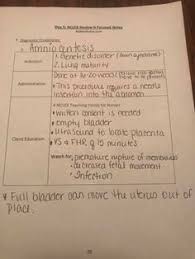 Day 5: NCLEX Review-It Focused Notes
Diagnostic Procedures
Amniocentesis
Indication
1. Genetic disorder (Down syndrome)
2. Lung maturity
Administration
Done at 16-20 weeks
*This procedure requires a needle
insertion into the abdomen
Client Education
4 NCLEX Teaching Points for Nurses
written consent is needed
empty bladder
ultrasound to locate placenta
VS & FHR q 15 minutes
Watch for: premature rupture of membranes
decreased fetal movement
Infection
* Full bladder can move the uterus out of
place.